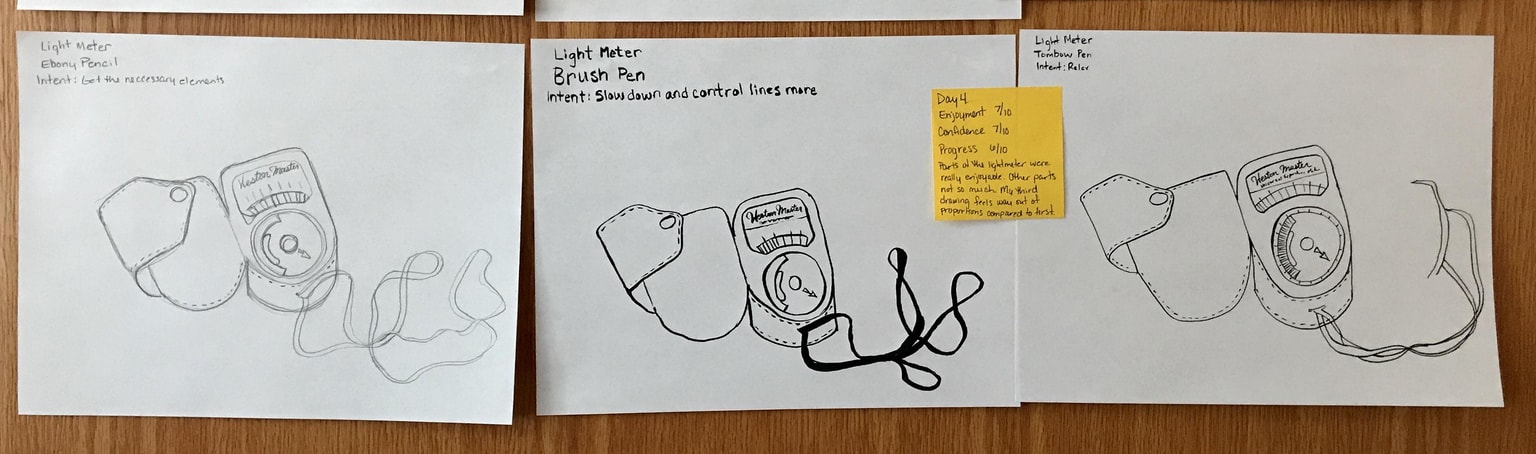 Light Meter
Ebony Pencil
Intent: Get the neccessary elements
Weston Master
Light Meter
Brush Pen
Intent: Slow down and control lines more
Weston Master
Day 4
Enjoyment 7/10
Confidence 7/10
Progress 6/10
Parts of the lightmeter were
really enjoyable. Other parts
not so much. My third
drawing feels way out of
proportions compared to first.
Light Meter
Tombow Pen
Intent: Relax
Weston Master